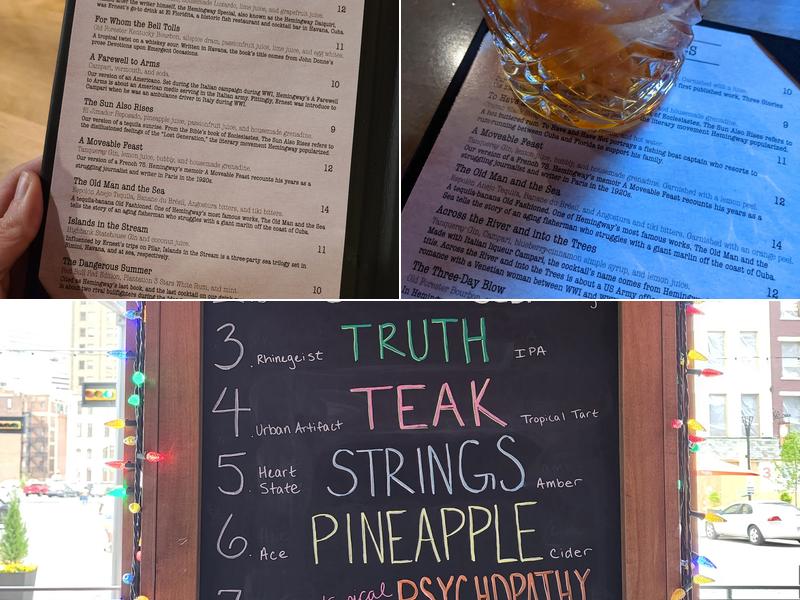 after the writer himself, the Hemingway Special, also known as the Hemingway Daiquiri,
was Ernest's go-to drink at El Floridita, a historic fish restaurant and cocktail bar in Havana, Cuba.
12
For Whom the Bell Tolls
Old Forester Kentucky Bourbon, allspice dram, passionfruit juice, lime juice, and egg whites.
A tropical twist on a whiskey sour. Written in Havana, the book's title comes from John Donne's
prose Devotions upon Emergent Occasions.
11
A Farewell to Arms
Campari, vermouth, and soda.
10
Our version of an Americano. Set during the Italian campaign during WWI, Hemingway's A Farewell
to Arms is about an American medic serving in the Italian army. Fittingly, Ernest was introduce to
Campari when he was an ambulance driver in Italy during WWI.
The Sun Also Rises
El Jimador Reposado, pineapple juice, passionfruit juice, and housemade grenadine.
9
Our version of a tequila sunrise. From the Bible's book of Ecclesiastes, The Sun Also Rises refers to
the disillusioned feelings of the "Lost Generation," the literary movement Hemingway popularized.
A Moveable Feast
Tanqueray Gin, lemon juice, bubbly, and housemade grenadine.
12
Our version of a French 75. Hemingway's memoir A Moveable Feast recounts his years as a
struggling journalist and writer in Paris in the 1920s.
The Old Man and the Sea
Espolòn Añejo Tequila, Banane du Brésil, Angostura bitters, and tiki bitters.
14
A tequila-banana Old Fashioned. One of Hemingway's most famous works, The Old Man and the Sea
tells the story of an aging fisherman who struggles with a giant marlin off the coast of Cuba.
Islands in the Stream
Highbank Statehouse Gin and coconut juice.
11
Influenced by Ernest's trips on Pilar, Islands in the Stream is a three-party sea trilogy set in
Bimini, Havana, and at sea, respectively.
The Dangerous Summer
Red Bull Red Edition, Plantation 3 Stars White Rum, and mint.
10
Garnished with a lime.
10
first published work, Three Stories
and housemade grenadine.
9
of Ecclesiastes, The Sun Also Rises refers to
the literary movement Hemingway popularized.
To Have
hot water.
A hot buttered rum. To Have and Have Not portrays a fishing boat captain who resorts to
rum-running between Cuba and Florida to support his family.
11
A Moveable Feast
Tanqueray Gin, lemon juice, bubbly, and housemade grenadine. Garnished with a lemon peel.
Our version of a French 75. Hemingway's memoir A Moveable Feast recounts his years as a
struggling journalist and writer in Paris in the 1920s.
12
The Old Man and the Sea
Espolòn Añejo Tequila, Banane du Brésil, Angostura bitters, and tiki bitters. Garnished with an orange peel.
A tequila-banana Old Fashioned. One of Hemingway's most famous works, The Old Man and the
Sea tells the story of an aging fisherman who struggles with a giant marlin off the coast of Cuba.
14
Across the River and into the Trees
Tanqueray Gin, Campari, blueberry-cinnamon simple syrup, and lemon juice.
Made with Italian liqueur Campari, the cocktail's name comes from Hemingway
title. Across the River and into the Trees is about a US Army
romance with a Venetian woman between WWI and
12
The Three-Day Blow
Old Forester Bourbon
3. Rhinegeist TRUTH IPA
4. Urban Artifact TEAK Tropical Tart
5. Heart State STRINGS Amber
6. Ace PINEAPPLE Cider
7 PSYCHOPATHY